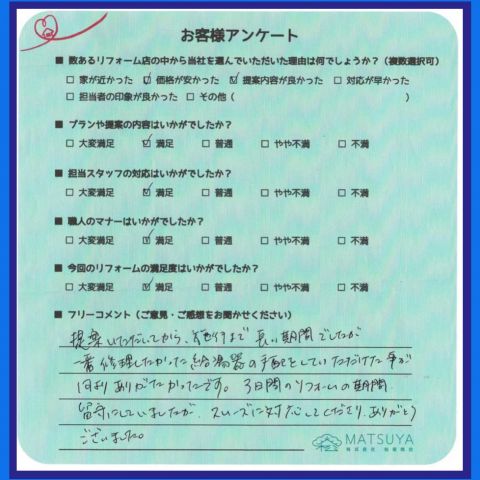 お客様アンケート
■ 数あるリフォーム店の中から当社を選んでいただいた理由は何でしょうか?（複数選択可）
□ 家が近かった ☑ 価格が安かった ☑ 提案内容が良かった □ 対応が早かった
□ 担当者の印象が良かった □ その他（ ）
■ プランや提案の内容はいかがでしたか?
□ 大変満足 ☑ 満足 □ 普通 □ やや不満 □ 不満
■ 担当スタッフの対応はいかがでしたか?
□ 大変満足 ☑ 満足 □ 普通 □ やや不満 □ 不満
■ 職人のマナーはいかがでしたか?
□ 大変満足 ☑ 満足 □ 普通 □ やや不満 □ 不満
■ 今回のリフォームの満足度はいかがでしたか?
□ 大変満足 ☑ 満足 □ 普通 □ やや不満 □ 不満
■ フリーコメント（ご意見・ご感想をお聞かせください）
提案いただいてから、施行まで長い期間でしたが
一番修理したかった給湯器の手配をしていただけた事が
ありがたかったです。3日間のリフォームの期間
留守にしていましたが、スムーズに対応してくださり、ありがとう
ございました。
MATSUYA
株式会社